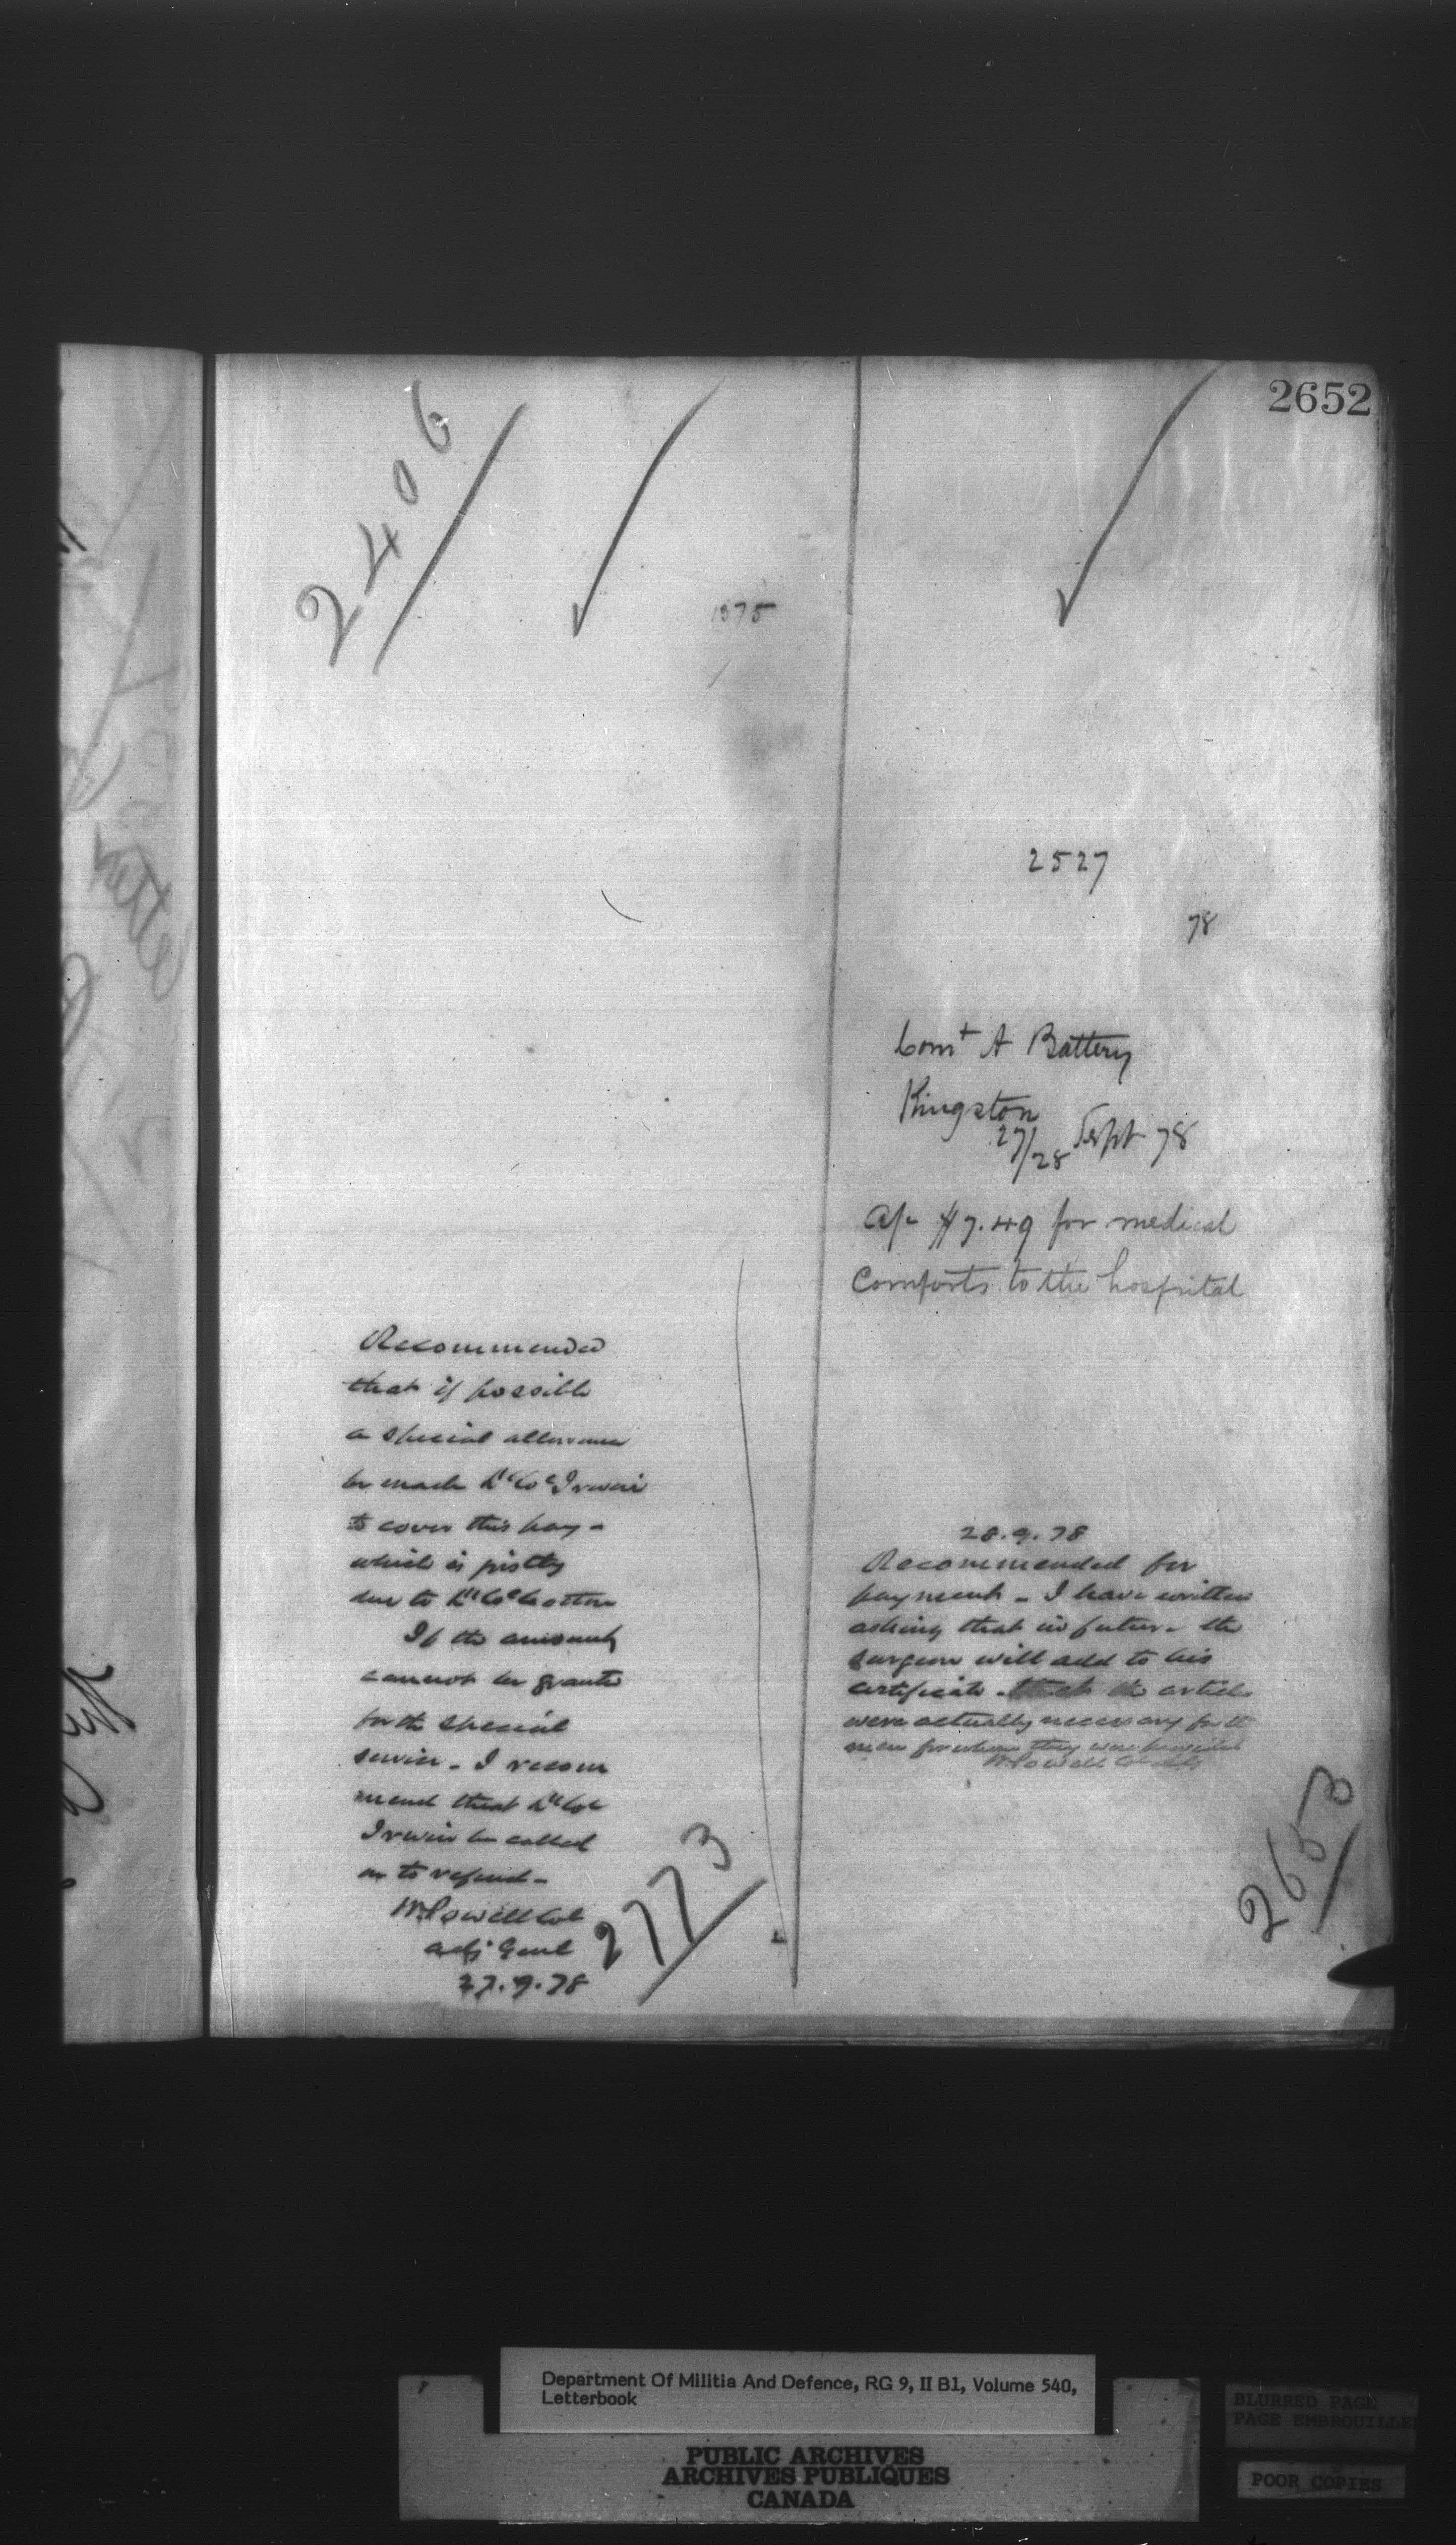 2652
2406
1375
Recommended
that if possible
a special allowance
be made Lt Col Irwin
to cover this pay -
which is justly
due to Lt Col Cotton
If the amount
cannot be granted
for the special
service - I recom
mend that Lt Col
Irwin be called
on to refund -
W Powell Col
Adj Genl
27.9.78
2773
2527
78
Comt A Battery
Kingston
27/28 Sept 78
A/c $7.49 for medical
Comforts to the hospital
28.9.78
Recommended for
payment - I have written
asking that in future the
surgeon will add to his
certificate that the articles
were actually necessary for the
men for whom they were
W Powell Col
2653
Department Of Militia And Defence, RG 9, II B1, Volume 540,
Letterbook
PUBLIC ARCHIVES
ARCHIVES PUBLIQUES
CANADA
BLURRED PAGE
PAGE EMBROUILLE
POOR COPIES